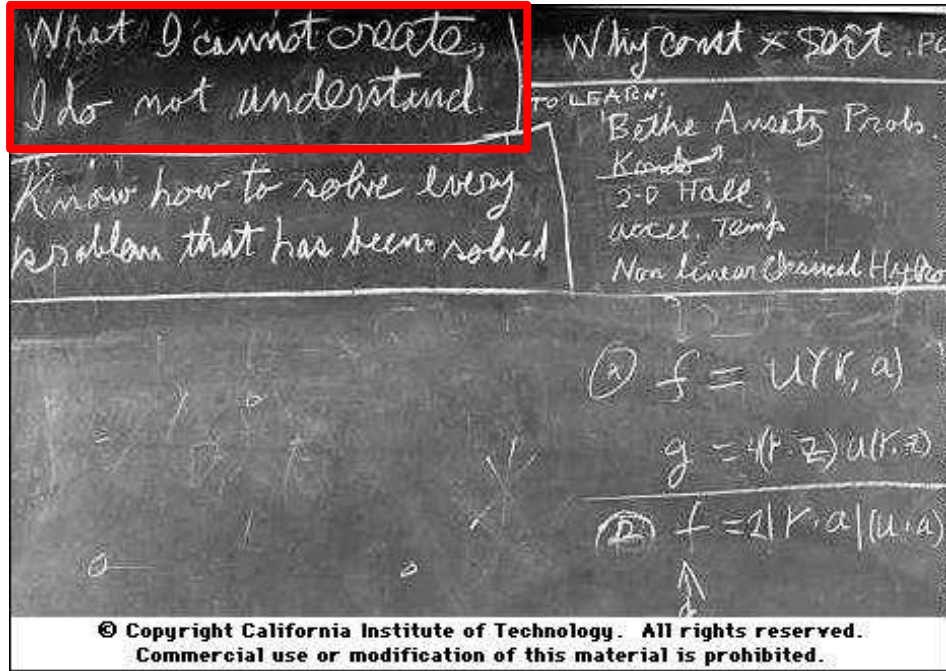 What I cannot create,
I do not understand.
Know how to solve every
problem that has been solved
Why const × sort . Po
TO LEARN:
Bethe Ansatz Probs.
Kondo
2-D Hall
accel. Temp
Non linear Classical Hydro
f = U(r, a)
g = 4(r·z) u(r,z)
f = 2|r·a|(u·a)
© Copyright California Institute of Technology. All rights reserved.
Commercial use or modification of this material is prohibited.